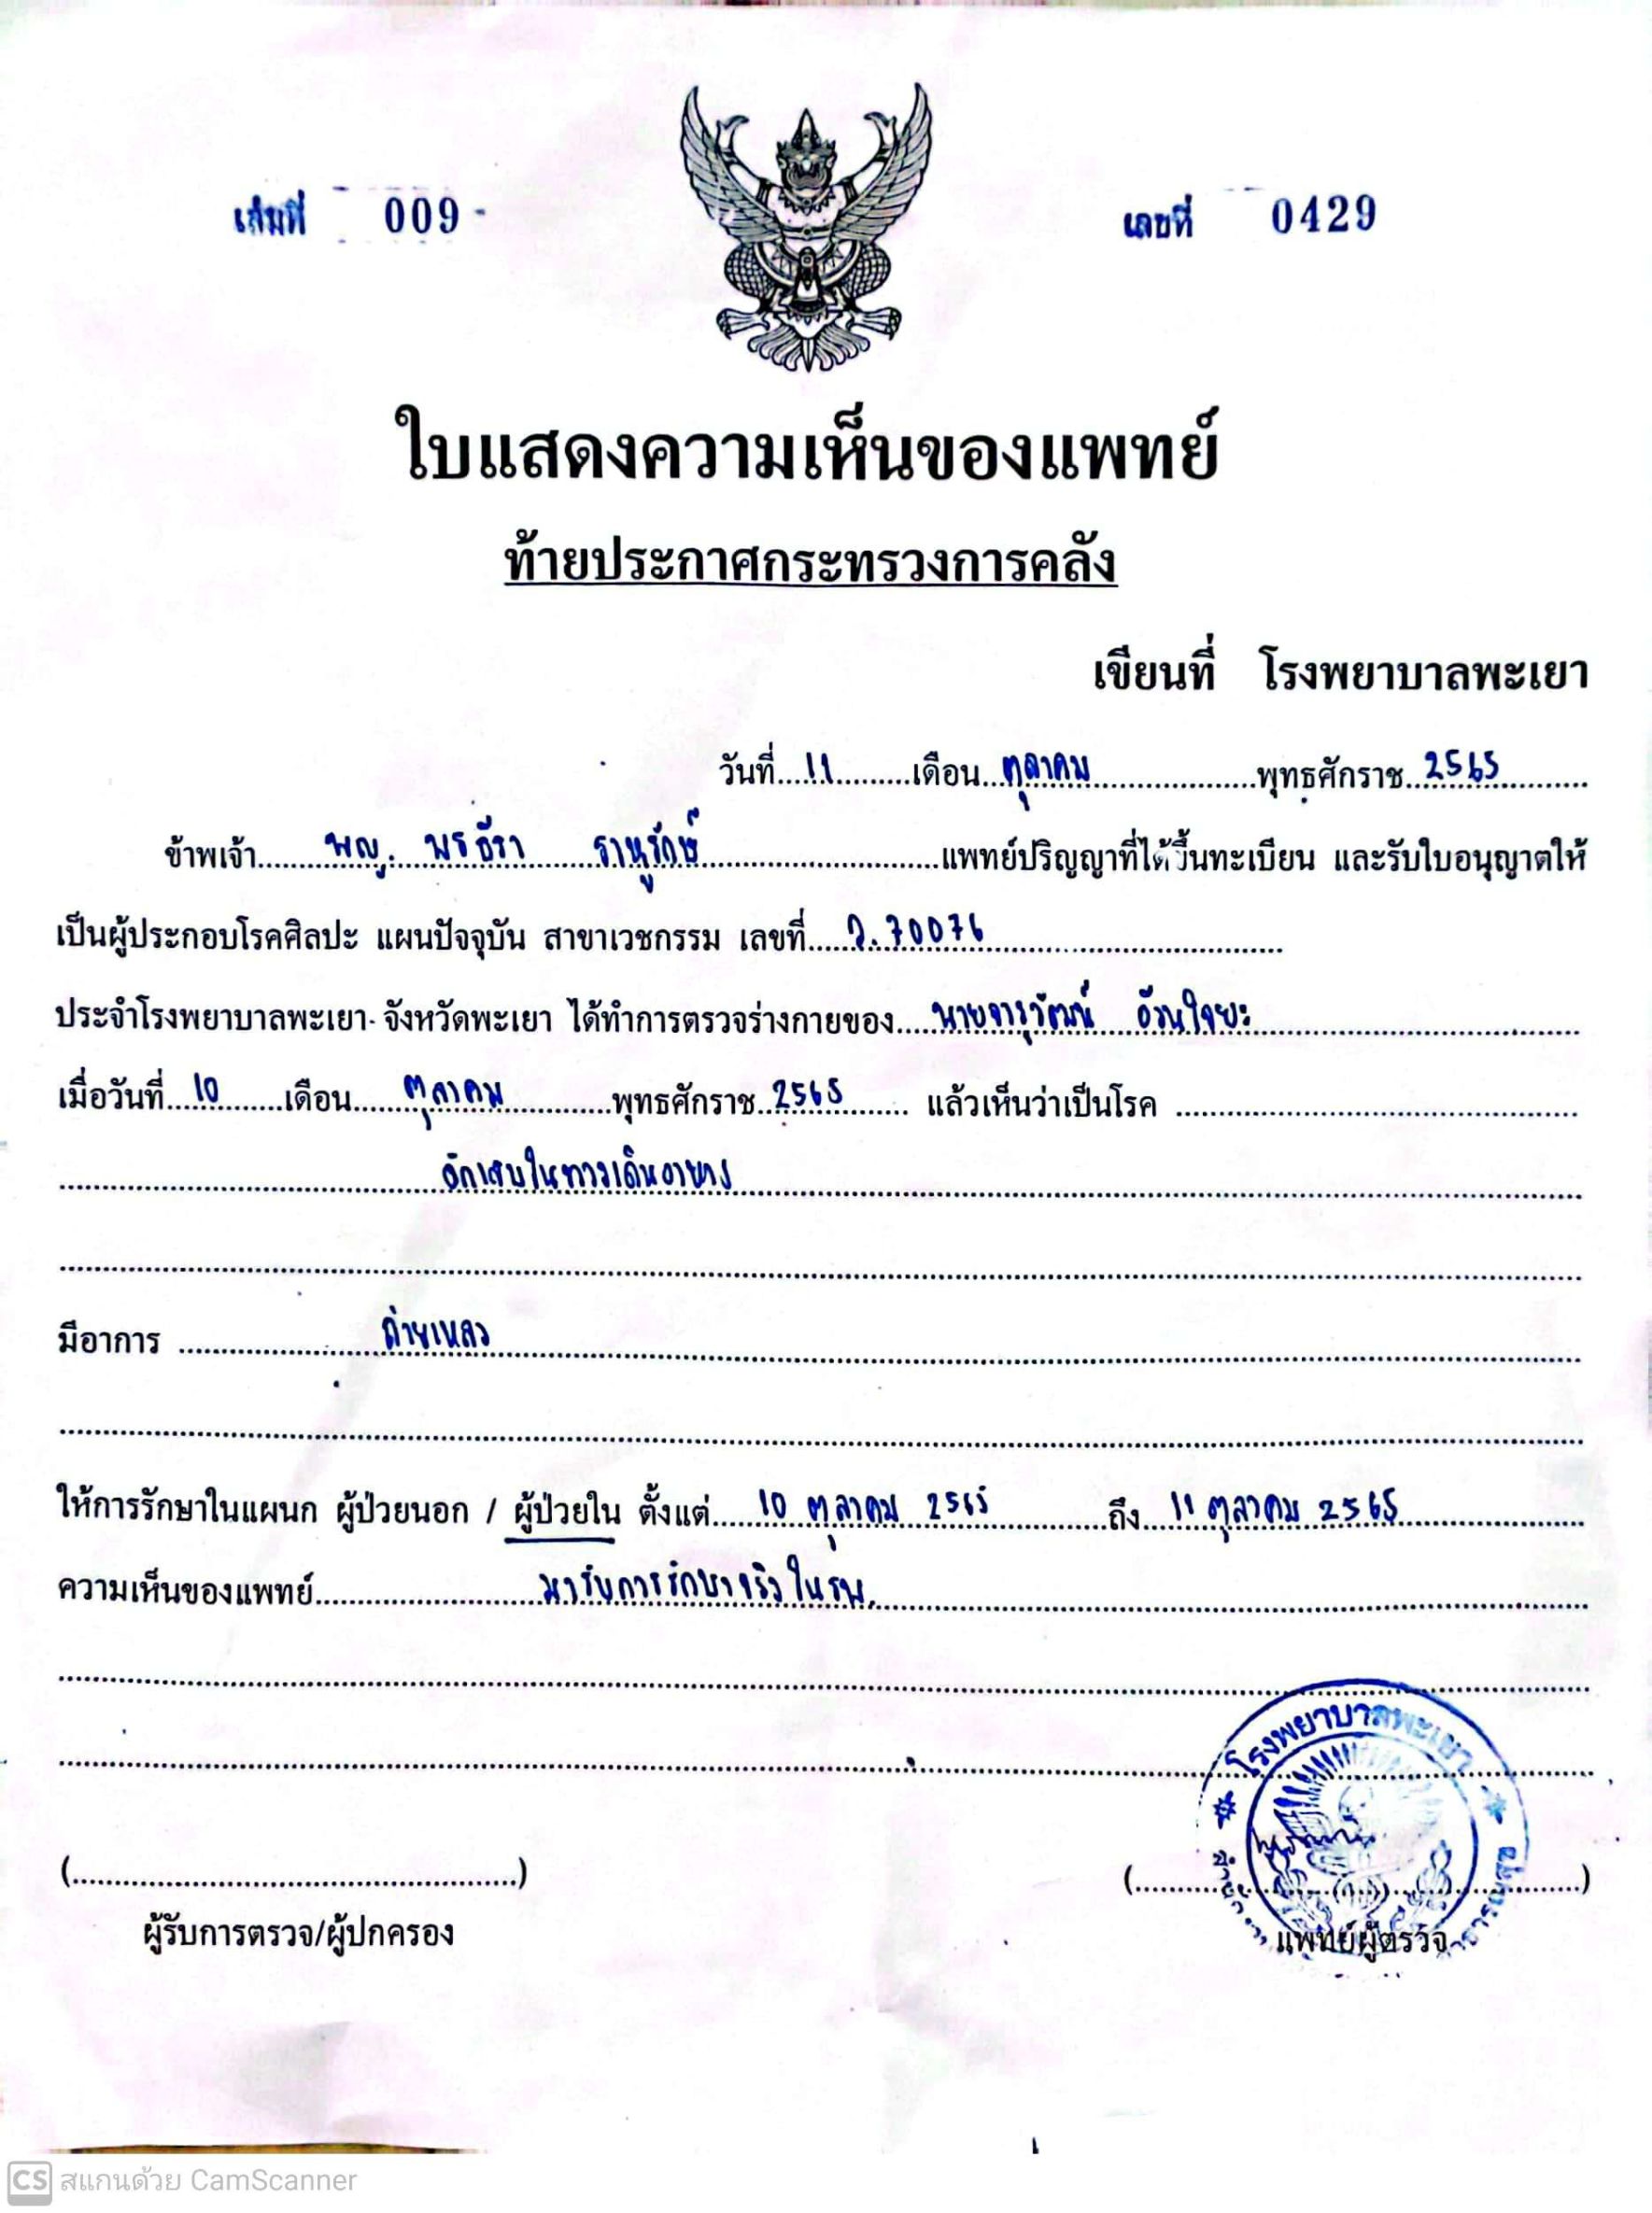 เล่มที่ 009
เลขที่ 0429
ใบแสดงความเห็นของแพทย์
ท้ายประกาศกระทรวงการคลัง
เขียนที่ โรงพยาบาลพะเยา
วันที่...11...เดือน...ตุลาคม...พุทธศักราช...2565...
ข้าพเจ้า...พญ. พรธีรา ราหุรักษ์...แพทย์ปริญญาที่ได้ขึ้นทะเบียน และรับใบอนุญาตให้
เป็นผู้ประกอบโรคศิลปะ แผนปัจจุบัน สาขาเวชกรรม เลขที่...ว.70076...
ประจำโรงพยาบาลพะเยา จังหวัดพะเยา ได้ทำการตรวจร่างกายของ...นายจารุวัฒน์...
เมื่อวันที่...10...เดือน...ตุลาคม...พุทธศักราช...2565... แล้วเห็นว่าเป็นโรค ...
อักเสบในทางเดินอาหาร
มีอาการ ...ถ่ายเหลว...
ให้การรักษาในแผนก ผู้ป่วยนอก / ผู้ป่วยใน ตั้งแต่...10 ตุลาคม 2565...ถึง...11 ตุลาคม 2565...
ความเห็นของแพทย์...มารับการรักษาจริงในรพ....
โรงพยาบาลพะเยา
(...)
(...)
ผู้รับการตรวจ/ผู้ปกครอง
แพทย์ผู้ตรวจ
CS สแกนด้วย CamScanner